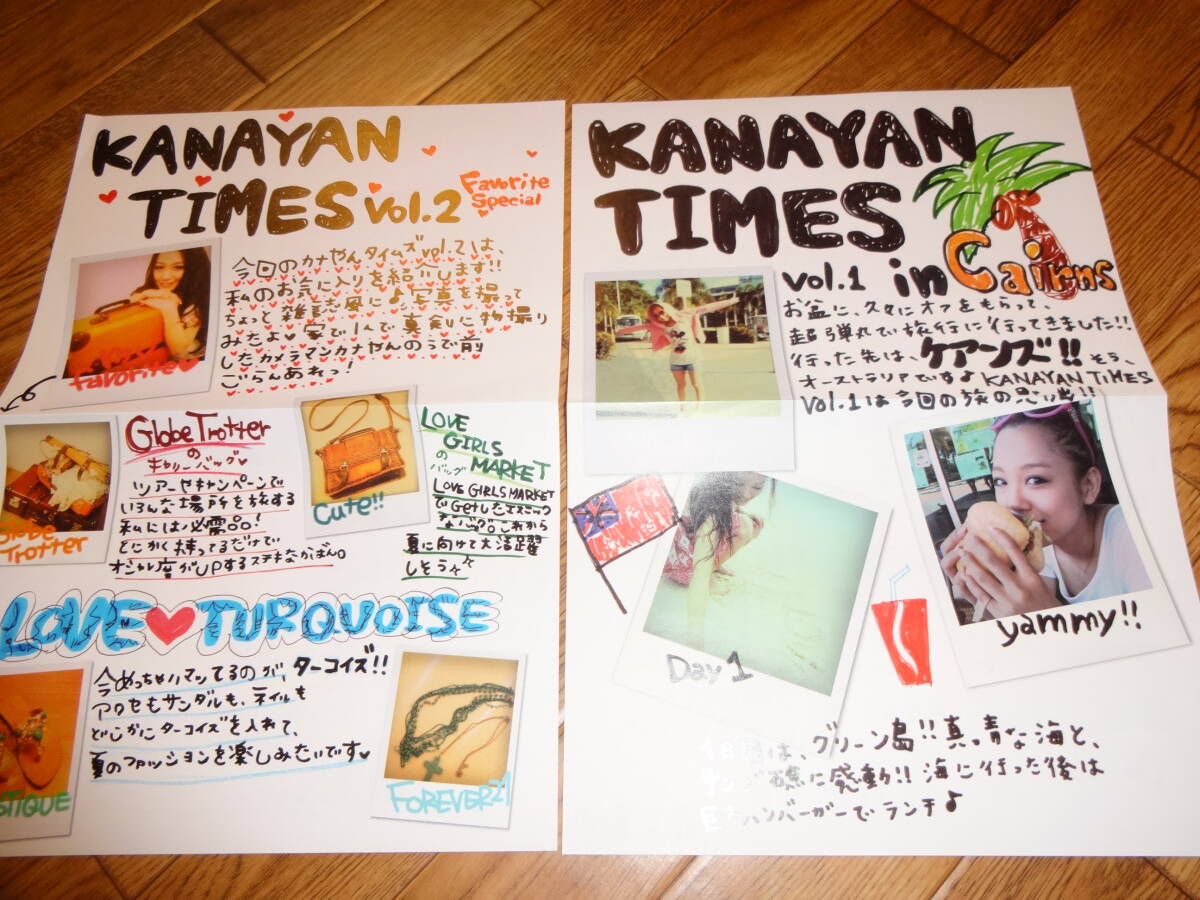 KANAYAN
TIMES vol.2
Favorite
Special
今回のカナやんタイムズvol.2は、
私のお気に入りを紹介します!!
ちょっと雑誌風に♪写真を撮って
みたよ♥家で1人で真剣に物撮り
したカメラマンカナやんのうで前
ごらんあれっ!
favorite
Globe Trotter
の
キャリーバッグ♥
ツアーやキャンペーンで
いろんな場所を旅する
私には必需品!
とにかく持ってるだけで
オシャレ度がUPするステキなかばん。
Globe
Trotter
Cute!!
LOVE
GIRLS
の MARKET
バッグ
LOVE GIRLS MARKET
でGetしたエスニック
なバッグ。これから
夏に向けて大活躍
しそう☆
LOVE♥TURQUOISE
今めっちゃハマってるのが、ターコイズ!!
アクセもサンダルも、ネイルも
どこかにターコイズを入れて、
夏のファッションを楽しみたいです♥
STIQUE
FOREVER21
KANAYAN
TIMES
vol.1 in Cairns
お盆に、久々にオフをもらって、
超弾丸で旅行に行ってきました!!
行った先は、ケアンズ!! そう、
オーストラリアですよ KANAYAN TIMES
vol.1は今回の旅の思い出!!
Day 1
yammy!!
1日目は、グリーン島!!真っ青な海と、
サンゴ礁に感動!! 海に行った後は
巨大ハンバーガーでランチ♪